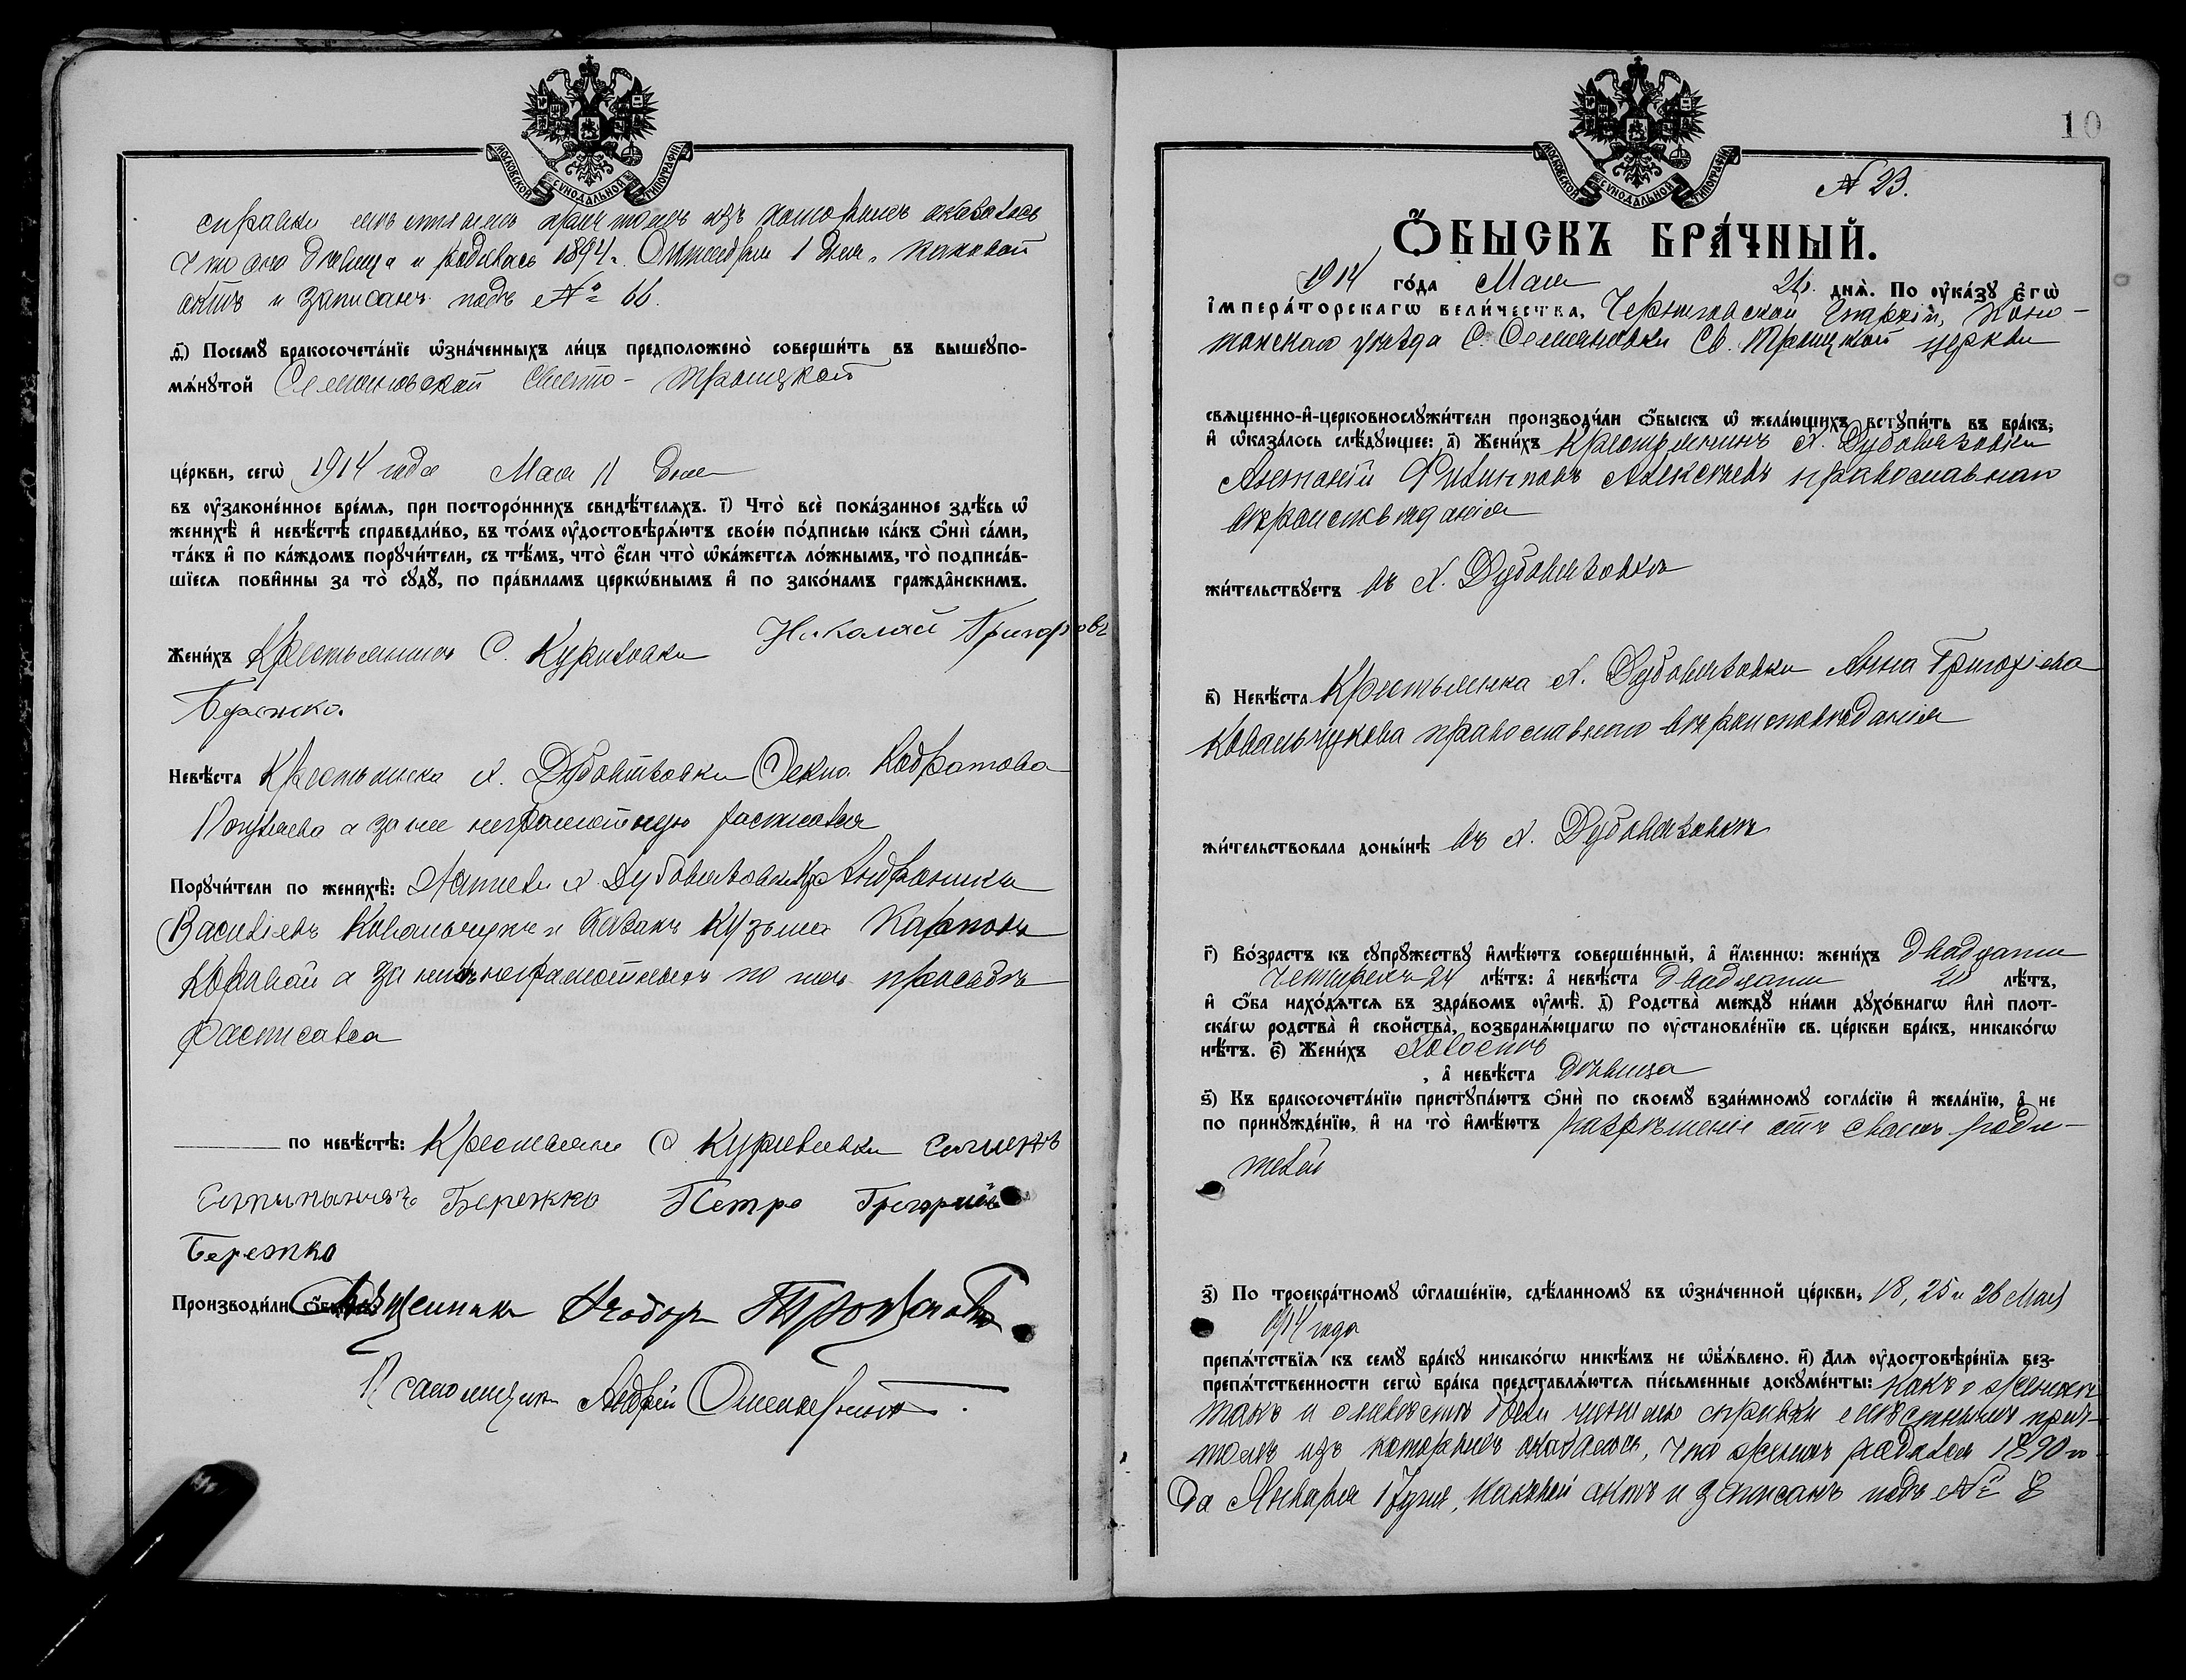 МОСКОВСКОЙ СУНОДАЛЬНОЙ ТИПОГРАФІИ
справки изъ которыхъ оказалось
что она дѣвица и родилась 1894 г. 1 дня, каковой
актъ и записанъ подъ № 66.
д҃) Посемꙋ бракосочета́нїе ѡ҆зна́ченныхъ ли́цъ предположено̀ соверши́ть въ вышеупо-
мѧ́нутой Семеновской Свято-Троицкой
це́ркви, сегѡ̀ 1914 года Мая 11 дня
въ ᲂу҆законе́нное вре́мѧ, при посторо́ннихъ свидѣ́телѧхъ. і҃) Что̀ всѐ пока́занное здѣ́сь ѡ҆
женихѣ̀ и҆ невѣ́стѣ справедли́во, въ то́мъ ᲂу҆достовѣрѧ́ютъ свое́ю по́дписью ка́къ ѻ҆нѝ са́ми,
та́къ и҆ по ка́ждомъ порꙋчи́тели, съ тѣ́мъ, что̀ є҆́сли что̀ ѡ҆ка́жетсѧ ло́жнымъ, то̀ подписа́в-
шїесѧ пови́нны за то̀ сꙋдꙋ̀, по пра́виламъ церкѡ́внымъ и҆ по зако́намъ гражда̂нскимъ.
Жени́хъ Крестьянинъ С. Куриловки Николай Григоровъ
Бережко.
Невѣ́ста Крестьянка х. Дубовязовки
а за нее неграмотную расписался
Порꙋчи́тели по женихѣ̀: х. Дубовязовки
Василіевъ Ковальчукъ и Казакъ Кузьма Карповъ
а за нихъ неграмотныхъ по ихъ просьбѣ
расписался
по невѣ́стѣ: Крестьяне С Куриловки
Бережко Петро Григорлиевъ
Бережко
Производи́ли ѻ҆́быскъ: Священникъ Троицкій
Псаломщикъ Андрей
10
МОСКОВСКОЙ СУНОДАЛЬНОЙ ТИПОГРАФІИ
№ 23.
Ѻ҆́БЫСКЪ БРА́ЧНЫЙ.
1914 го́да Мая 26. днѧ̀. По ᲂу҆ка́зꙋ є҆гѡ̀
і҆мпера́торскагѡ вели́чества, Черниговской Епархіи, Коно-
топскаго уѣзда С. Семеновки Св. Троицкой церкви
свѧще́нно-и҆-церковнослꙋжи́тели производи́ли ѻ҆́быскъ ѡ҆ жела́ющихъ встꙋпи́ть въ бра́къ,
и҆ ѡ҆каза́лось слѣ́дующее: а҃) Жени́хъ Крестьянинъ х. Дубовязовки
Антоній Филиповъ Алексѣевъ православнаго
вѣроисповѣданія
жи́тельствꙋетъ въ х. Дубовязовкѣ
в҃) Невѣ́ста Крестьянка х. Дубовязовки Анна Григоріева
Ковальчукова православнаго вѣроисповѣданія
жи́тельствовала доны́нѣ въ х. Дубовязовкѣ
г҃) Во́зрастъ къ сꙋпрꙋ́жествꙋ и҆мѣ́ютъ соверше́нный, а҆ и҆́меннѡ: жени́хъ двадцати
четырехъ 24 лѣ́тъ: а҆ невѣ́ста двадцати 20 лѣ́тъ,
и҆ ѻ҆́ба нахо́дѧтсѧ въ здра́вомъ ᲂу҆мѣ̀. д҃) Родства̀ междꙋ̀ ни́ми дꙋхо́внагѡ и҆лѝ плот-
ска́гѡ родства̀ и҆ сво́йства̀, возбранѧ́ющагѡ по ᲂу҆становле́нїю св. це́ркви бра́къ, никако́гѡ
нѣ́тъ. є҃) Жени́хъ холостъ
, а҆ невѣ́ста дѣвица
ѕ҃) Къ бракосочета́нїю пристꙋпа́ютъ ѻ҆нѝ по своемꙋ̀ взаи́мномꙋ согла́сїю и҆ жела́нїю, а҆ не
по принꙋжде́нїю, и҆ на то̀ и҆мѣ́ютъ разрѣшеніе отъ своихъ роди-
телей
з҃) По троекра́тномꙋ ѡ҆глаше́нїю, сдѣ́ланномꙋ въ ѡ҆зна́ченной це́ркви, 18, 25 и 26 Мая
1914 года
препѧ́тствїѧ къ семꙋ̀ бра́кꙋ никако́гѡ никѣ́мъ не ѡ҆б̾ѧ́влено. и҃) Длѧ ᲂу҆достовѣре́нїѧ без-
препѧ́тственности сегѡ̀ бра́ка представлѧ́ютсѧ пи́сьменные докꙋме́нты: какъ о женихѣ
такъ и о невѣстѣ были чинимы справки мѣстнымъ прич-
томъ изъ которыхъ оказалось, что женихъ родился 1890 го-
да Января 17 дня, каковой актъ и записанъ подъ № 8